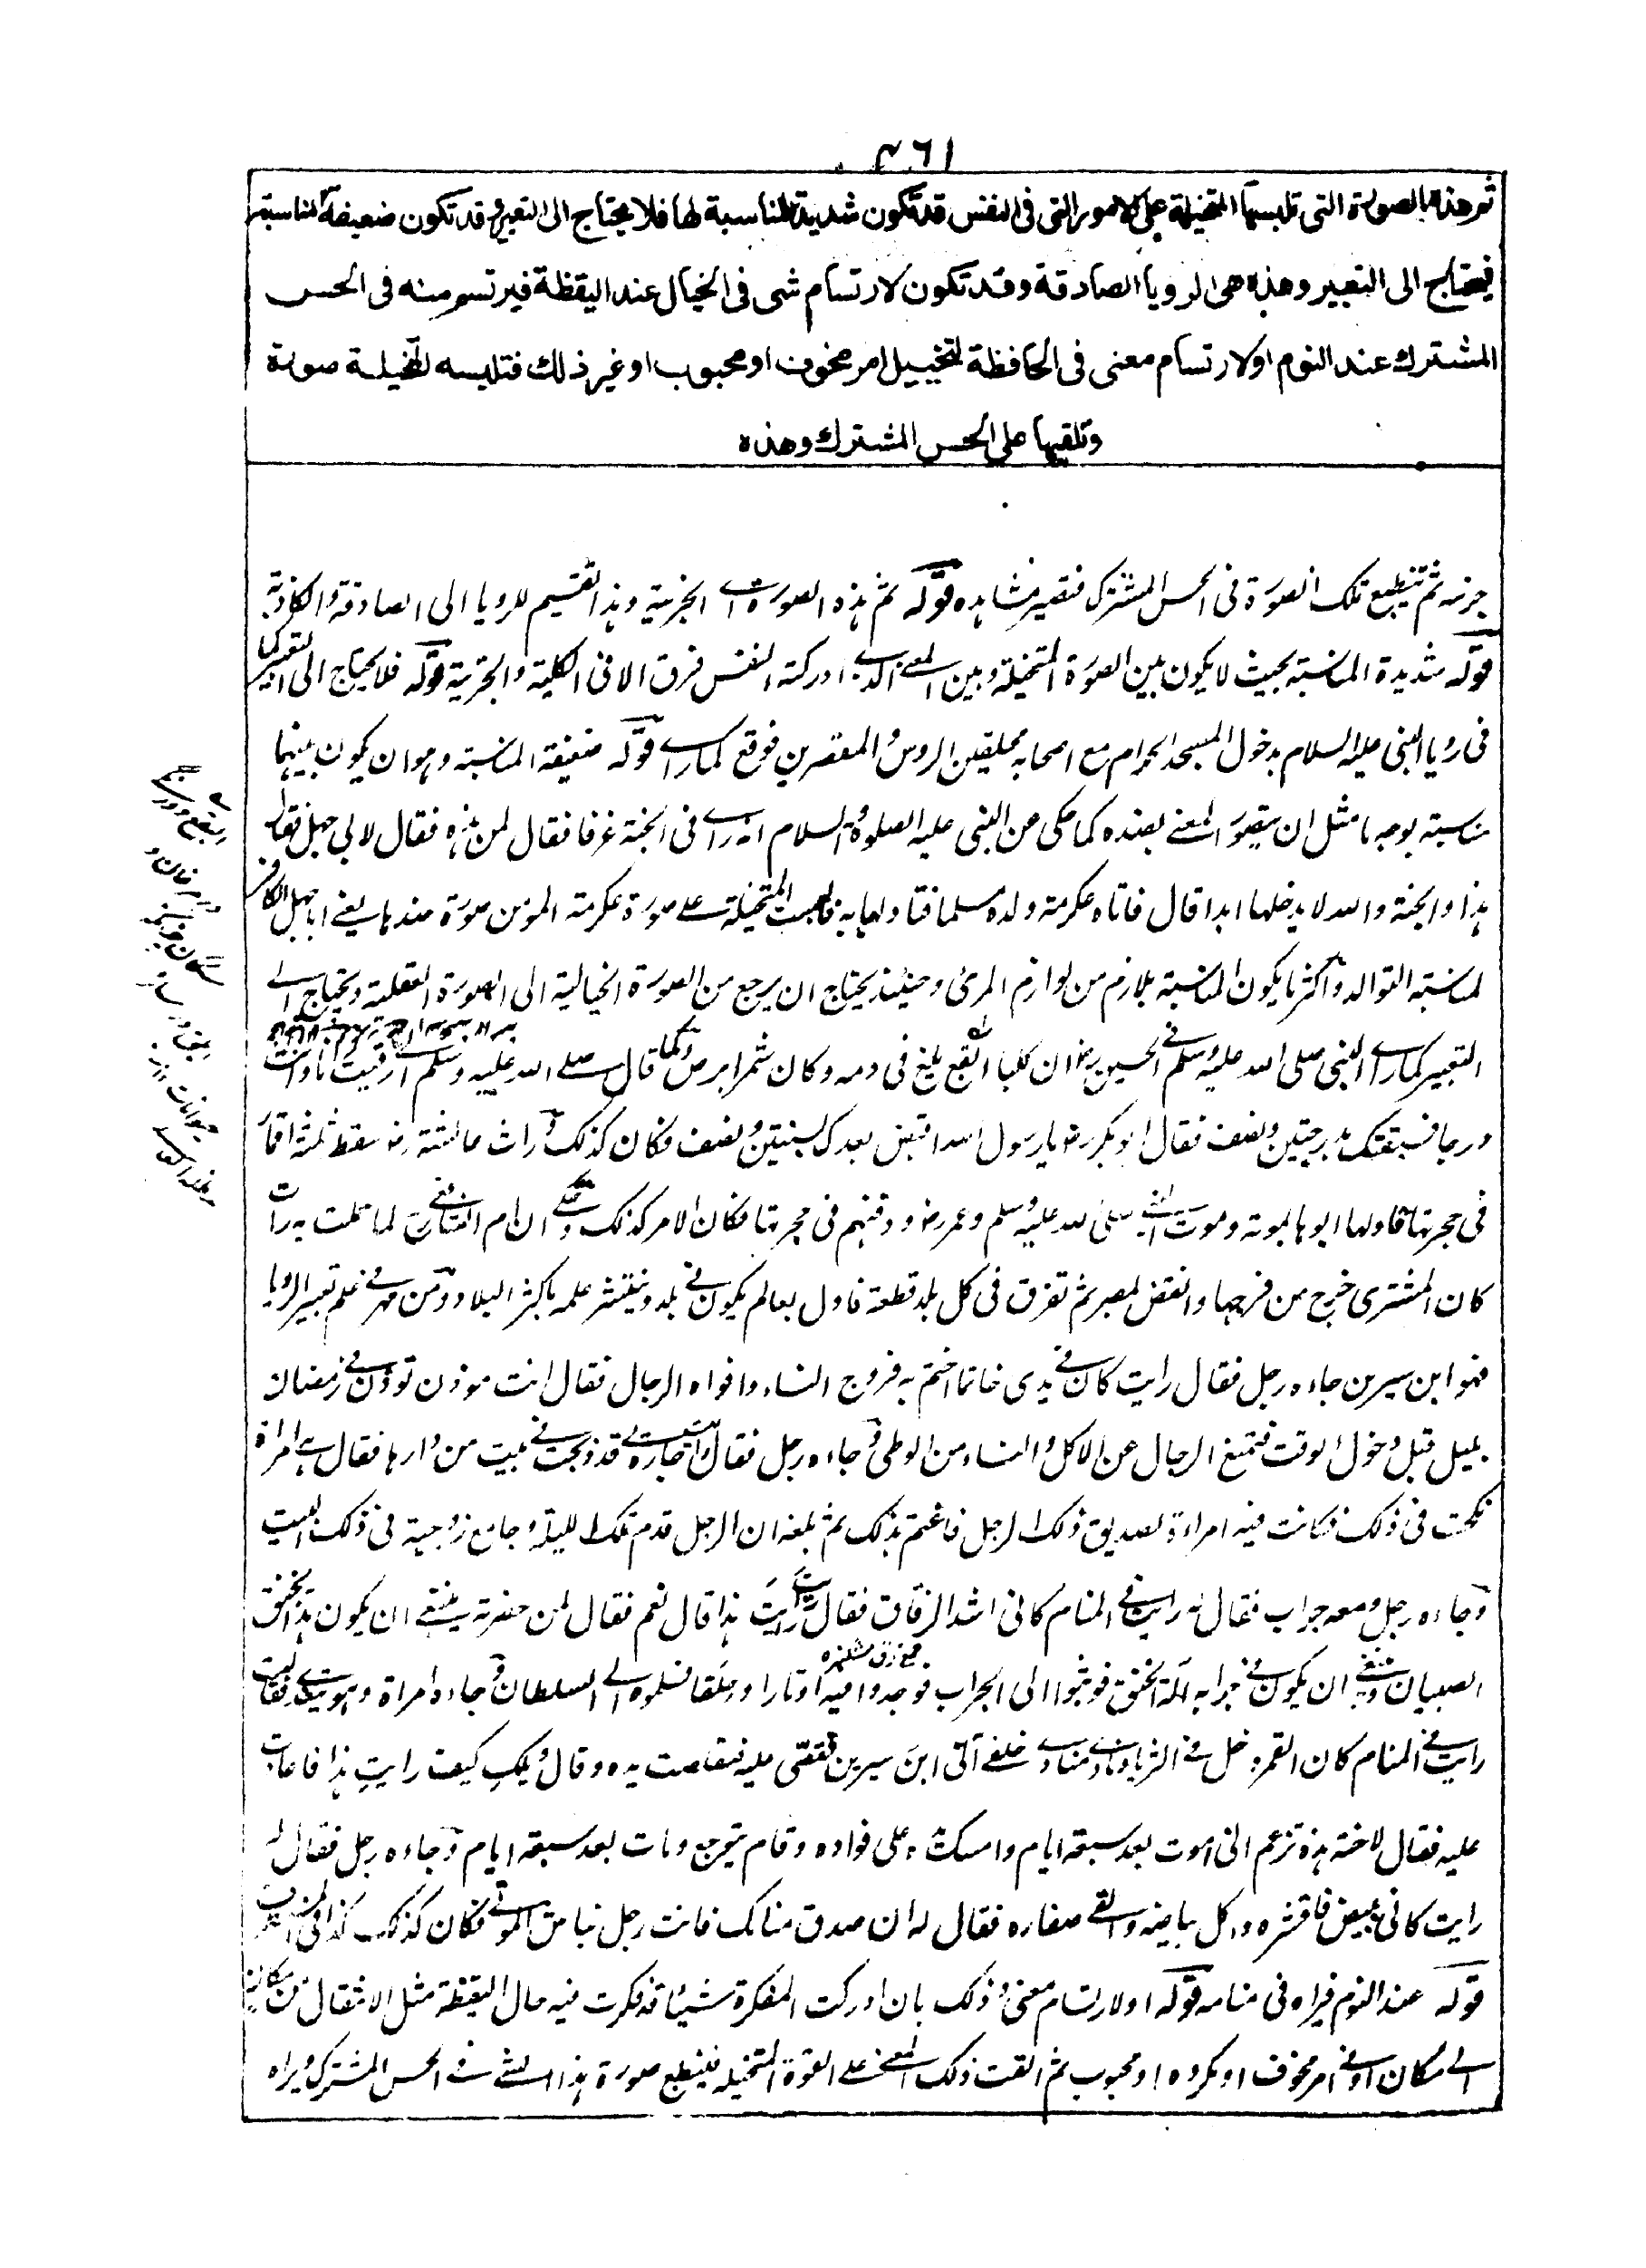 ٤٦١
ثم هذه الصورة التى تلبسها المتخيلة على الامور التى فى النفس قد تكون شديدة المناسبة لها فلا يحتاج الى التعبير وقد تكون ضعيفة المناسبة
فيحتاج الى التعبير وهذه هى الرويا الصادقة وقد تكون لارتسام شى فى الخيال عند اليقظة فيرتسم منه فى الحس
المشترك عند النوم او لارتسام معنى فى الحافظة لتخييل امر مخوف او محبوب او غير ذلك فتلبسه المتخيلة صورة
وتلقيها على الحس المشترك وهذه
جزئه ثم تنطبع تلك الصورة فى الحس المشترك فتصير مشاهده قوله ثم هذه الصورة اى الجزئية وهذا تقسيم للرويا الى الصادقة والكاذبة
قوله شديدة المناسبة بحيث لا يكون بين الصورة المتخيلة وبين المعنى الذى ادركته النفس فرق الا فى الكلية والجزئية قوله فلا يحتاج الى التعبير كما
فى رويا النبى عليه السلام بدخول المسجد الحرام مع اصحابه محلقين الروس والمقصرين فوقع كما راى قوله ضعيفة المناسبة وهو ان يكون بينهما
مناسبة بوجه ما مثل ان يتصور المعنى بضده كما حكى عن النبى عليه الصلوة والسلام انه راى فى الجنة غرفا فقال لمن هذه فقال لابى جهل فقال
هذا والجنة والله لا يدخلها ابدا قال فاتاه عكرمة ولده مسلما فتاولها به فالبست المتخيلة على صورة عكرمة المؤمن صورة ضدها يعنى ابا جهل الكافر
لمناسبة التوالد واكثر ما يكون المناسبة بلازم من لوازم المرئى وحينئذ يحتاج ان يرجع من الصورة الخيالية الى الصورة العقلية ويحتاج الى
التعبير كما راى النبى صلى الله عليه وسلم فى الحسين رض ان كلبا ابقع يلغ فى دمه وكان شمر ابرص وكما قال صلى الله عليه وسلم ارقيت انا وانت
درجا فسبقتك بدرجتين ونصف فقال ابو بكر رض يا رسول الله اقبض بعدك بسنتين ونصف فكان كذلك ورات عائشة رض سقط ثلثة اقمار
فى حجرتها فاولها ابوها بموته وموت النبى صلى الله عليه وسلم وعمر رض ودفنهم فى حجرتها فكان الامر كذلك وحكى ان ام الشافعى لما حملت به رات
كان المشترى خرج من فرجها وانقض بمصر ثم تفرق فى كل بلد قطعة فاول بعالم يكون فى بلد وينتشر علمه باكثر البلاد ومن مهر فى علم تعبير الرويا
فهو ابن سيرين جاءه رجل فقال رايت كان فى يدى خاتما اختم به فروج النساء وافواه الرجال فقال انت موذن توذن فى رمضان
بليل قبل دخول الوقت فتمنع الرجال عن الاكل والنساء من الوطى وجاءه رجل فقال رايت جارة لى قد ذبحت فى بيت من دارها فقال هى امراة
نكحت فى ذلك فكانت فيه امراة لصديق ذلك الرجل فاغتم بذلك ثم بلغه ان الرجل قدم تلك الليلة وجامع زوجته فى ذلك البيت
وجاءه رجل ومعه جراب فقال له رايت فى المنام كانى اشد الزقاق فقال انت رايت هذا قال نعم فقال لمن حضرته ينبغى ان يكون هذا يخنق
الصبيان وينبغى ان يكون فى جرابه آلة الخنق فوثبوا الى الجراب فوجدوا فيه اوتارا وحلقا فسلموه الى السلطان وجاءه امراة وهو يتغدى فقالت
رايت فى المنام كان القمر دخل فى الثريا ونادى مناد من خلفى ائتى ابن سيرين فقصى عليه فتقاصت يده وقال ويلك كيف رايت هذا فاعادت
عليه فقال لاخته هذه تزعم انى اموت بعد سبعة ايام وامسك يده على فواده وقام يتوجع ومات بعد سبعة ايام وجاءه رجل فقال له
رايت كانى آخذ البيض فاقشره واكل بياضه والقى صفاره فقال له ان صدق منامك فانت رجل نباش الموتى فكان كذلك كذا فى
قوله عند النوم فيراه فى منامه قوله او لارتسام معنى وذلك بان ادركت المفكرة شيئا قد فكرت فيه حال اليقظة مثل الانتقال من مكانه
الى مكان او فى امر مخوف او مكروه او محبوب ثم القت ذلك المعنى على القوة المتخيلة فينطبع صورة هذا الشئ فى الحس المشترك ويراه